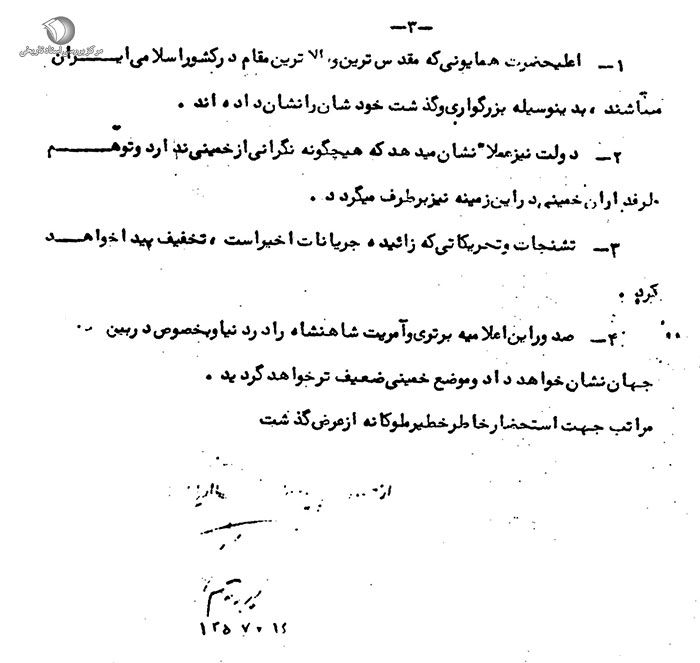 مرکز بررسی اسناد تاریخی
-۳-
۱- اعلیحضرت همایونی که مقدس ترین و بالاترین مقام در کشور اسلامی ایران
میباشند ، بدینوسیله بزرگواری و گذشت خودشان را نشان داده اند .
۲- دولت نیز عملا" نشان میدهد که هیچگونه نگرانی از خمینی ندارد و توهم
طرفداران خمینی در این زمینه نیز برطرف میگردد .
۳- تشنجات و تحریکاتی که زائیده جریانات اخیر است ، تخفیف پیدا خواهد
کرد .
۴- صدور این اعلامیه برتری و آمریت شاهنشاه را در دنیا و بخصوص در بین
جهان نشان خواهد داد و موضع خمینی ضعیف تر خواهد گردید .
مراتب جهت استحضار خاطر خطیر ملوکانه از عرض گذشت
از